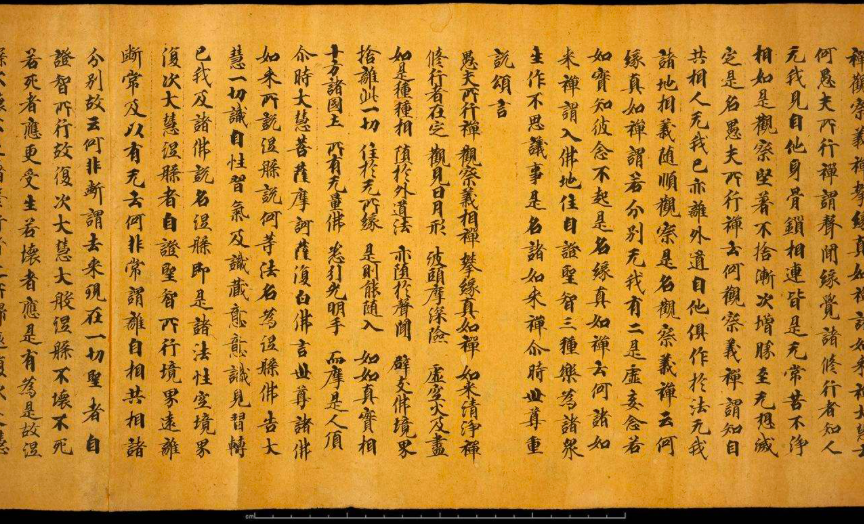 何愚夫所行禪謂聲聞緣覺諸修行者知人
无我見自他身骨鎖相連皆是无常苦不淨
相如是觀察堅著不捨漸次增勝至无想滅
定是名愚夫所行禪云何觀察義禪謂知自
共相人无我已亦離外道自他俱作於法无我
諸地相義随順觀察是名觀察義禪云何
緣真如禪謂若分別无我有二是虛妄念若
如實知彼念不起是名緣真如禪云何諸如
来禪謂入佛地住自證聖智三種樂為諸衆
生作不思議事是名諸如来禪尒時世尊重
說頌言
愚夫所行禪 觀察義相禪 攀緣真如禪 如来清淨禪
修行者在定 觀見日月形 波頭摩深險 虛空火及畫
如是種種相 墮於外道法 亦墮於聲聞 辟支佛境界
捨離此一切 住於无所緣 是則能随入 如如真實相
十方諸國土 所有无量佛 悉引光明手 而摩是人頂
尒時大慧菩薩摩訶薩復白佛言世尊諸佛
如来所說涅槃說何等法名為涅槃佛告大
慧一切識自性習氣及識藏意意識見習轉
已我及諸佛說名涅槃即是諸法性空境界
復次大慧涅槃者自證聖智所行境界遠離
斷常及以有无云何非常謂離自相共相諸
分別故云何非斷謂去来現在一切聖者自
證智所行故復次大慧大般涅槃不壞不死
若死者應更受生若壞者應是有為是故涅
cm